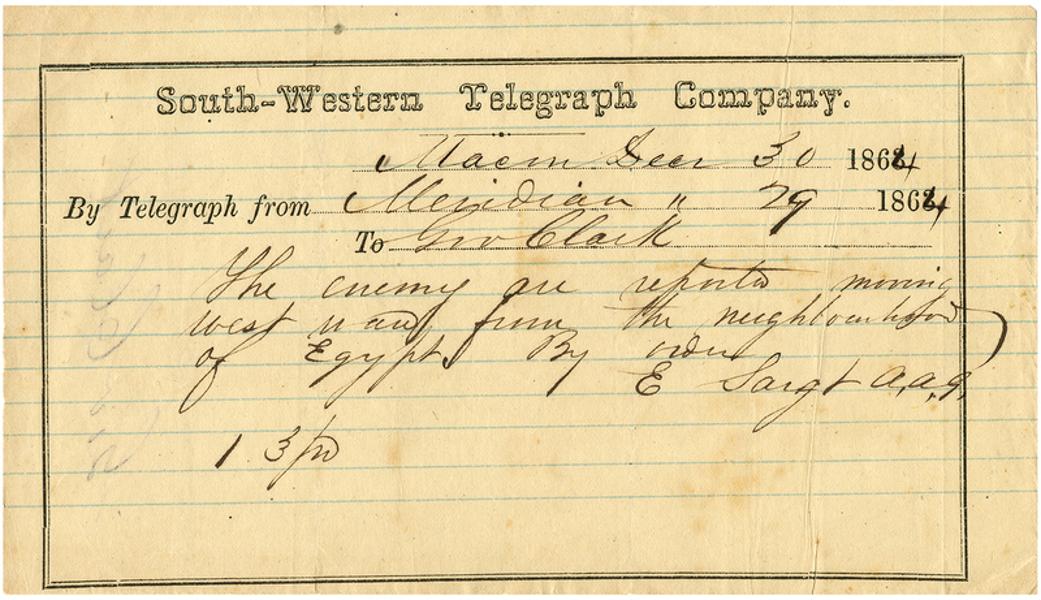 South-Western Telegraph Company.
Macon Decr 30 1864
By Telegraph from Meridian " 29 1864
To Gov Clark
The enemy are reported moving
west ward from the neighbourhood
of Egypt. By order
E Sargt A.A.G.
13 pd